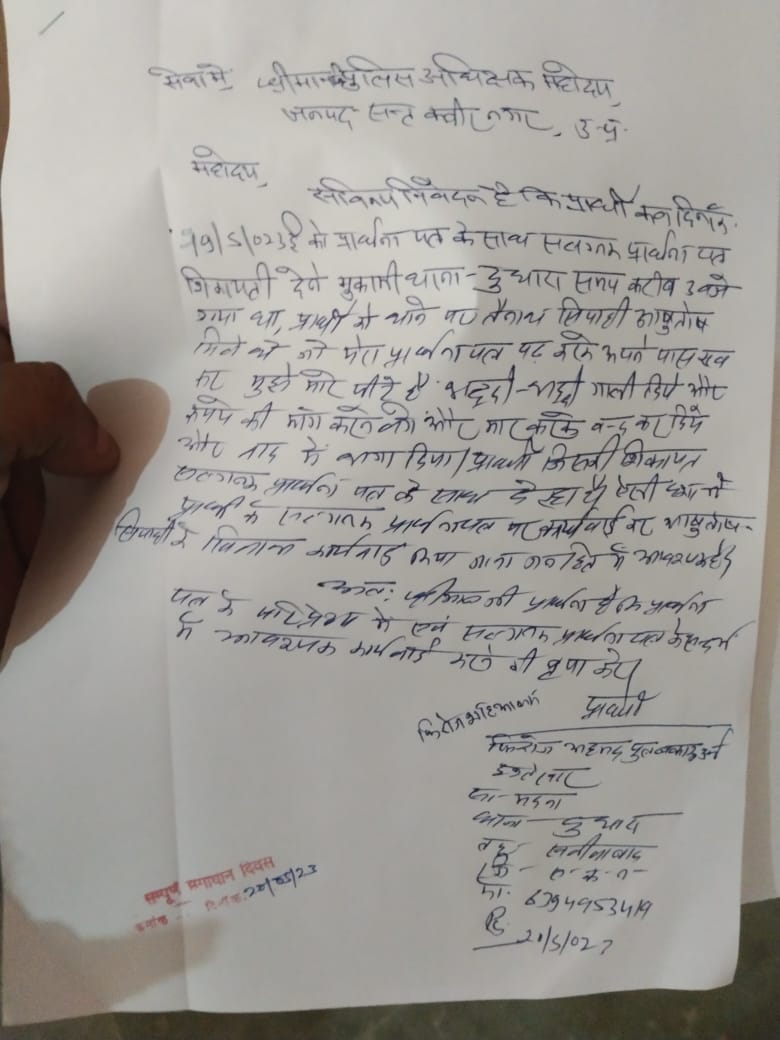 सेवा में, श्रीमान पुलिस अधिक्षक महोदय,
जनपद सन्त कबीर नगर, उ-प्र.
महोदय,
सविनय निवेदन है कि प्रार्थी कल दिनाँक
19/5/023ई को प्रार्थना पत्र के साथ सलग्नक प्रार्थना पत्र
शिकायती देने मुकामी थाना - दुधारा समय करीब 3 बजे
गया था, प्रार्थी को थाने पर तैनात सिपाही आषुतोष
मिले थे जो मेरा प्रार्थना पत्र पढ़ करके अपने पास रख
कर मुझे मारे पीटे है भद्दी-भद्दी गाली दिये और
रूपये की मांग करने लगे और मार करके बन्द कर दिये
और बाद में भगा दिया। प्रार्थी जिसकी शिकायत
सलग्नक प्रार्थना पत्र के साथ दे रहा है ऐसी दशा में
प्रार्थी के सलग्नक प्रार्थना पत्र पर कार्यवाई कर आषुतोष-
सिपाही के खिलाफ कार्यवाई किया जाना जनहित में आवश्यक है।
अत: श्रीमान जी प्रार्थना है कि प्रार्थना
पत्र के परिप्रेक्ष्य में एवं सलग्नक प्रार्थना पत्र के सन्दर्भ
में आवश्यक कार्यवाई करने की कृपा करें।
प्रार्थी
फिरोज अहमद पुत्र
सा-
थाना - दुधारा
तह- खलीलाबाद
जि- स-क-न-
मो. 6394953419
दि.
20/5/023
सम्पूर्ण समाधान दिवस
क्रमांक दिनांक 20/05/23